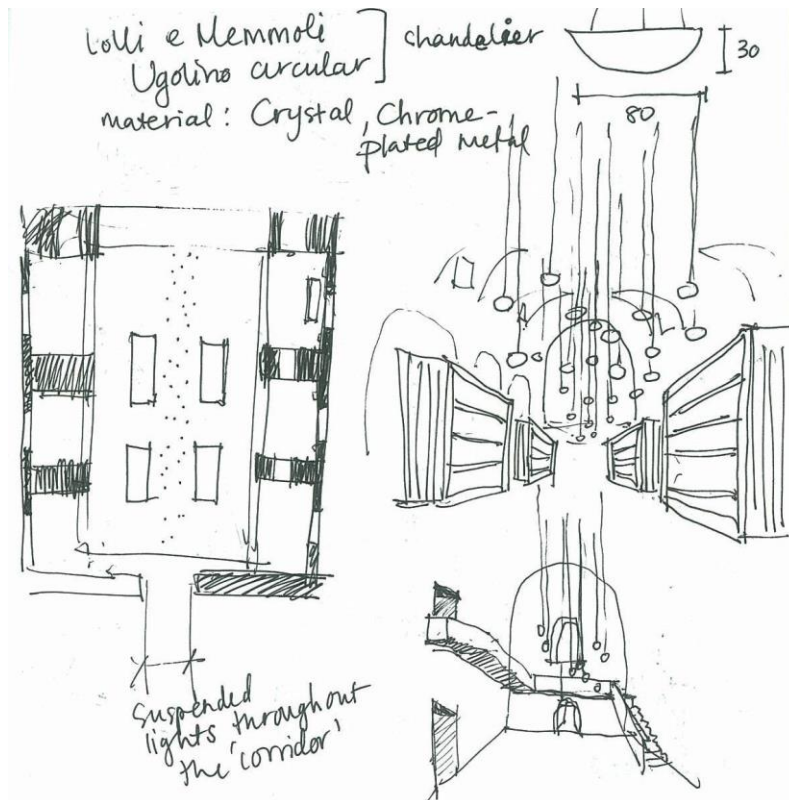 Lolli e Memmoli
Ugolino circular
chandelier
material: Crystal, Chrome-
plated metal
30
80
suspended
lights throughout
the 'corridor'